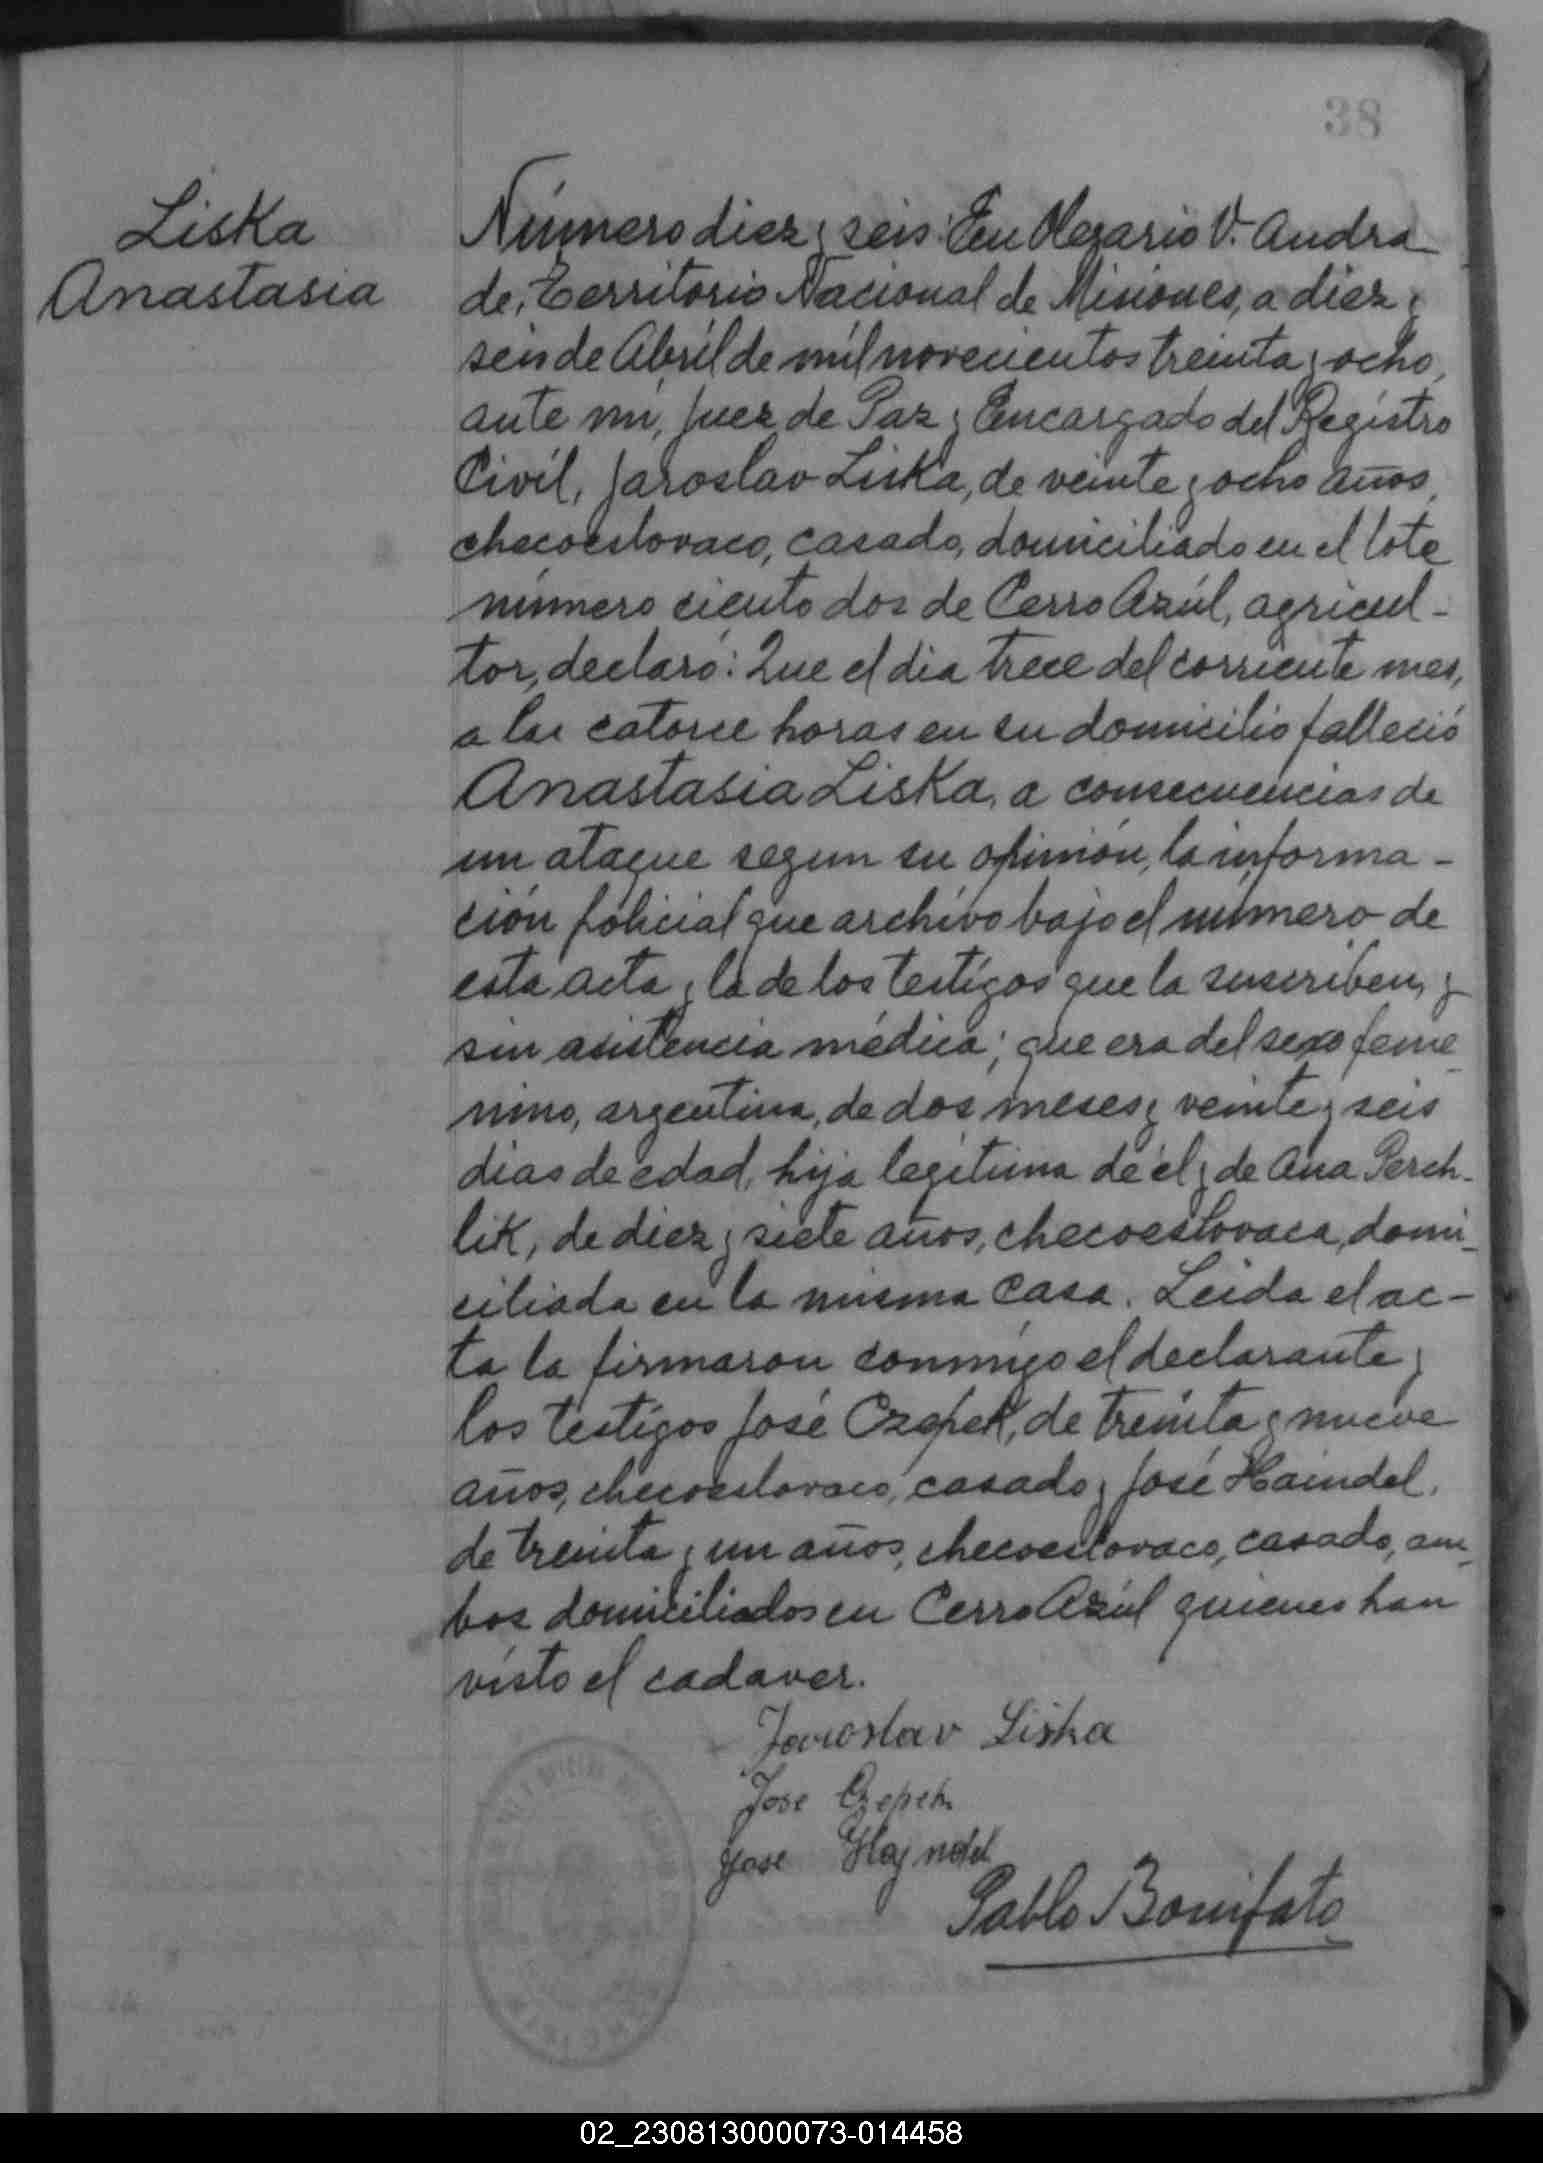 38
Liska
Anastasia
Número diez y seis: En Olegario V. Andra
de, Territorio Nacional de Misiones, a diez y
seis de Abríl de míl novecientos treinta y ocho,
ante mi, Juez de Paz y Encargado del Regístro
Civíl, Jaroslav Liska, de veinte y ocho años,
checoeslovaco, casado, domiciliado en el lote
número ciento dos de Cerro Azúl, agricul-
tor, declaró: Que el dia trece del corriente mes,
a las catorce horas en su domicilio falleció
Anastasia Liska, a consecuencias de
un ataque segun su opinión, la informa-
ción policial que archívo bajo el número de
esta acta y la de los testígos que la suscríben, y
sin asistencia médica; que era del sexo feme
nino, argentina, de dos meses y veinte y seis
dias de edad, hija legítima de él y de Ana Perch-
lik, de diez y siete años, checoeslovaca, domi-
ciliada en la misma casa. Leida el ac-
ta la firmaron conmigo el declarante y
los testígos José Czepek, de treinta y nueve
años, checoeslovaco, casado y José Haindel,
de treinta y un años, checoeslovaco, casado, am-
bos domiciliados en Cerro Azúl quienes han
vísto el cadaver.
Jaroslav Liska
Jose Czepek
Jose Hajndel
Pablo Bonifato
02_230813000073-014458